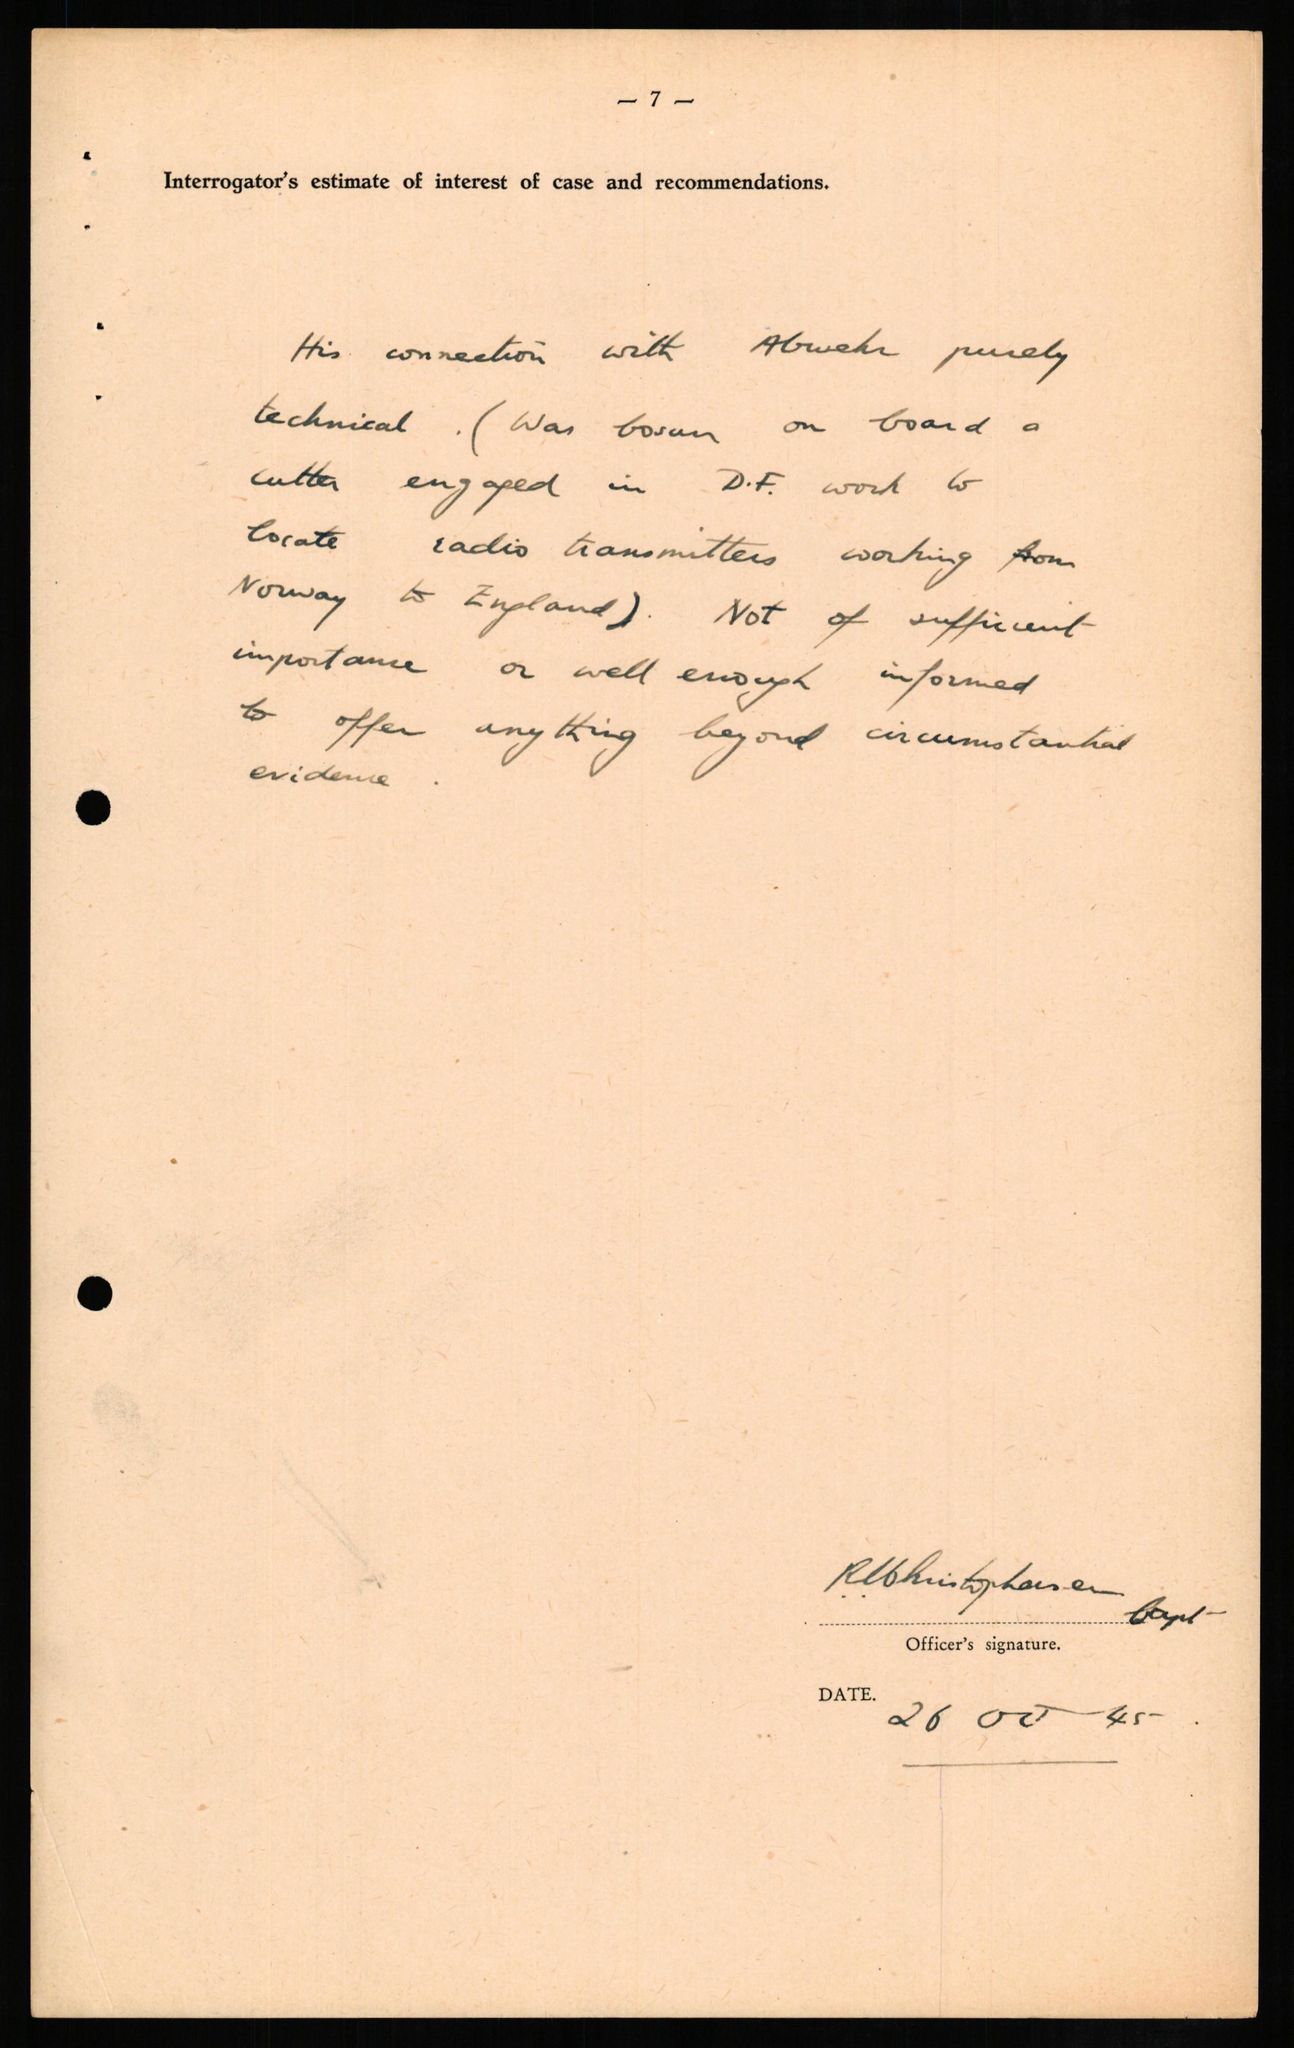 — 7 —
Interrogator's estimate of interest of case and recommendations.
His connection with Abwehr purely
technical. (Was bosun on board a
cutter engaged in D.F. work to
locate radio transmitters working from
Norway to England). Not of sufficient
importance or well enough informed
to offer anything beyond circumstantial
evidence.
Christophersen
Capt
Officer's signature.
DATE.
26 Oct 45.